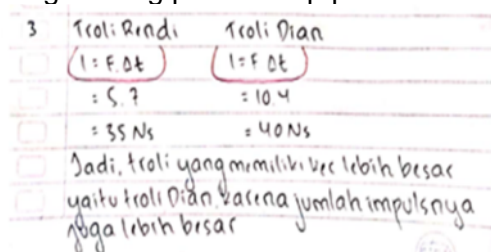 3 Troli Rendi Troli Dian
I = F. Δt I = F Δt
= 5.7 = 10.4
= 35 Ns = 40 Ns
Jadi, troli yang memiliki kec lebih besar
yaitu troli Dian, karena jumlah impulsnya
juga lebih besar